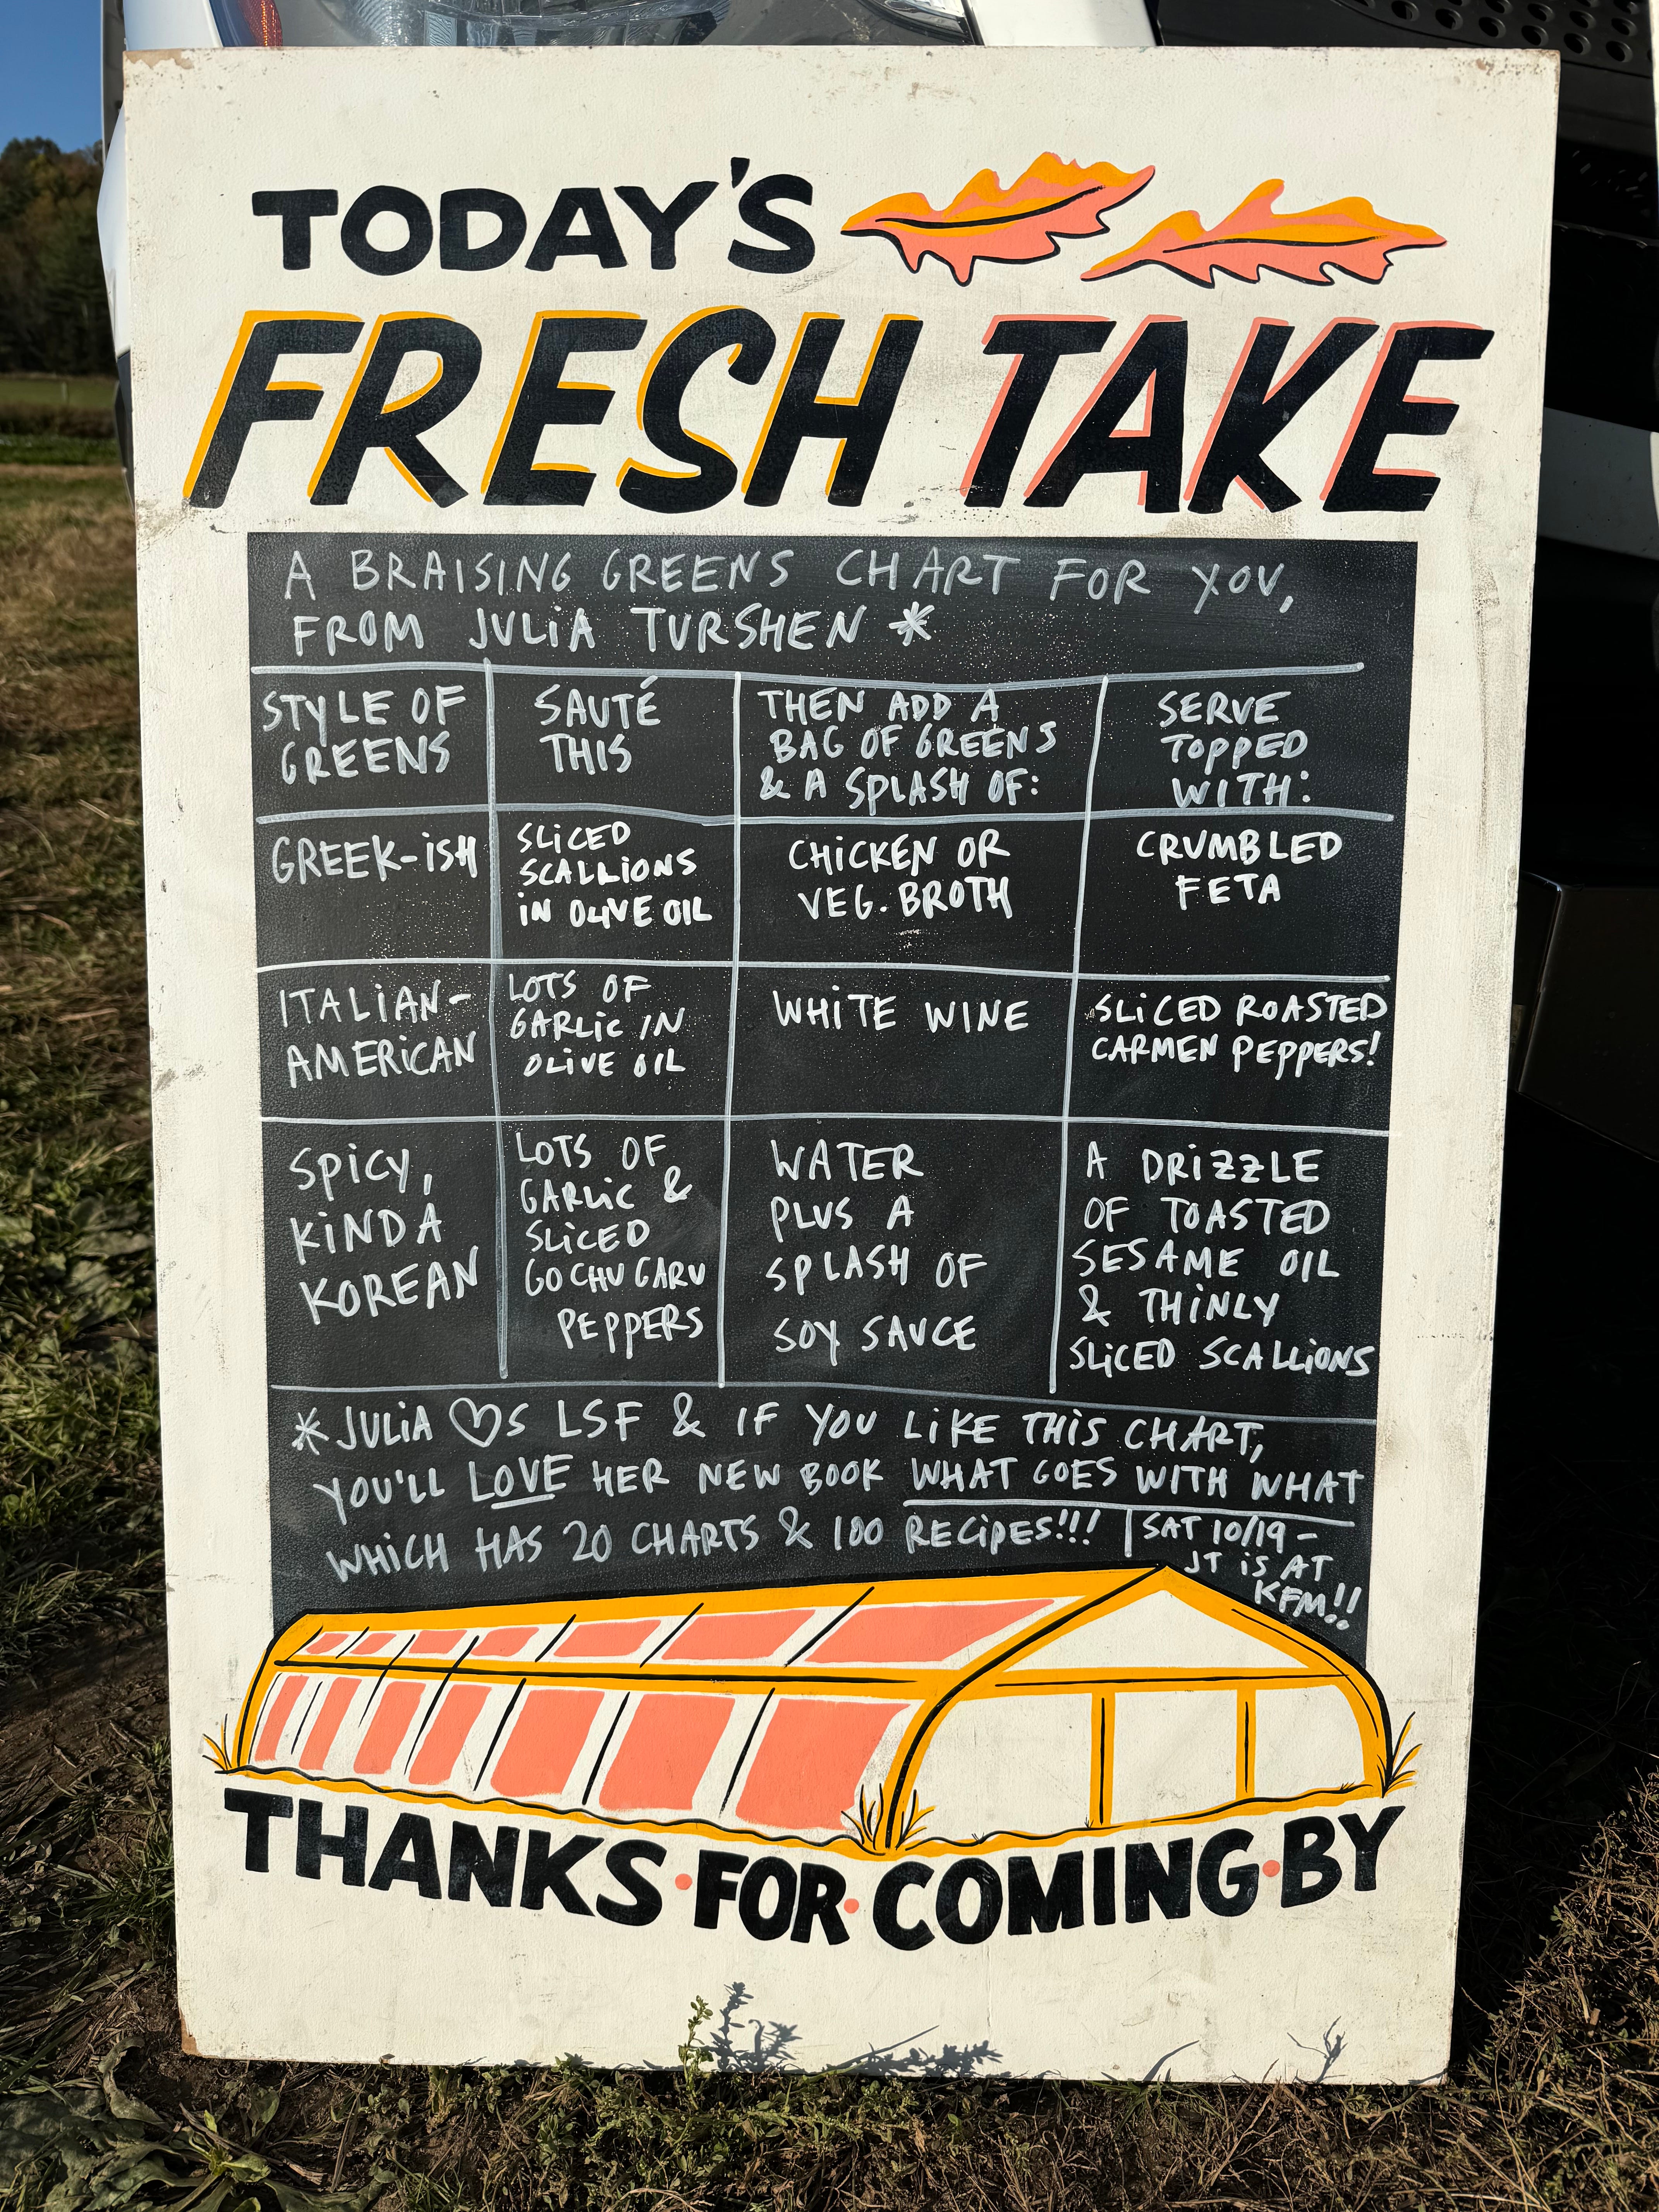 TODAY'S
FRESH TAKE
A BRAISING GREENS CHART FOR YOU,
FROM JULIA TURSHEN *
STYLE OF
GREENS
SAUTÉ
THIS
THEN ADD A
BAG OF GREENS
& A SPLASH OF:
SERVE
TOPPED
WITH:
GREEK-ISH
SLICED
SCALLIONS
IN OLIVE OIL
CHICKEN OR
VEG. BROTH
CRUMBLED
FETA
ITALIAN-
AMERICAN
LOTS OF
GARLIC IN
OLIVE OIL
WHITE WINE
SLICED ROASTED
CARMEN PEPPERS!
SPICY,
KINDA
KOREAN
LOTS OF
GARLIC &
SLICED
GOCHUGARU
PEPPERS
WATER
PLUS A
SPLASH OF
SOY SAUCE
A DRIZZLE
OF TOASTED
SESAME OIL
& THINLY
SLICED SCALLIONS
*JULIA ♡S LSF & IF YOU LIKE THIS CHART,
YOU'LL LOVE HER NEW BOOK WHAT GOES WITH WHAT
WHICH HAS 20 CHARTS & 100 RECIPES!!!
SAT 10/19 -
JT IS AT
KFM!!
THANKS·FOR·COMING·BY